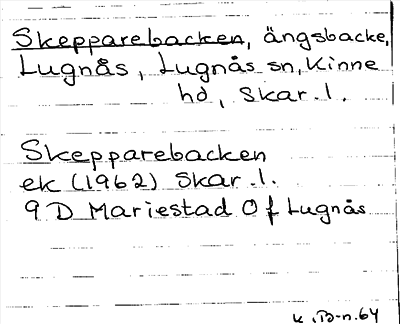 Skepparebacken, ängsbacke,
Lugnås, Lugnås sn, Kinne
hd, Skar.l.
Skepparebacken
ek (1962) Skar.l.
9 D Mariestad 0 f Lugnås
K.B-n.64